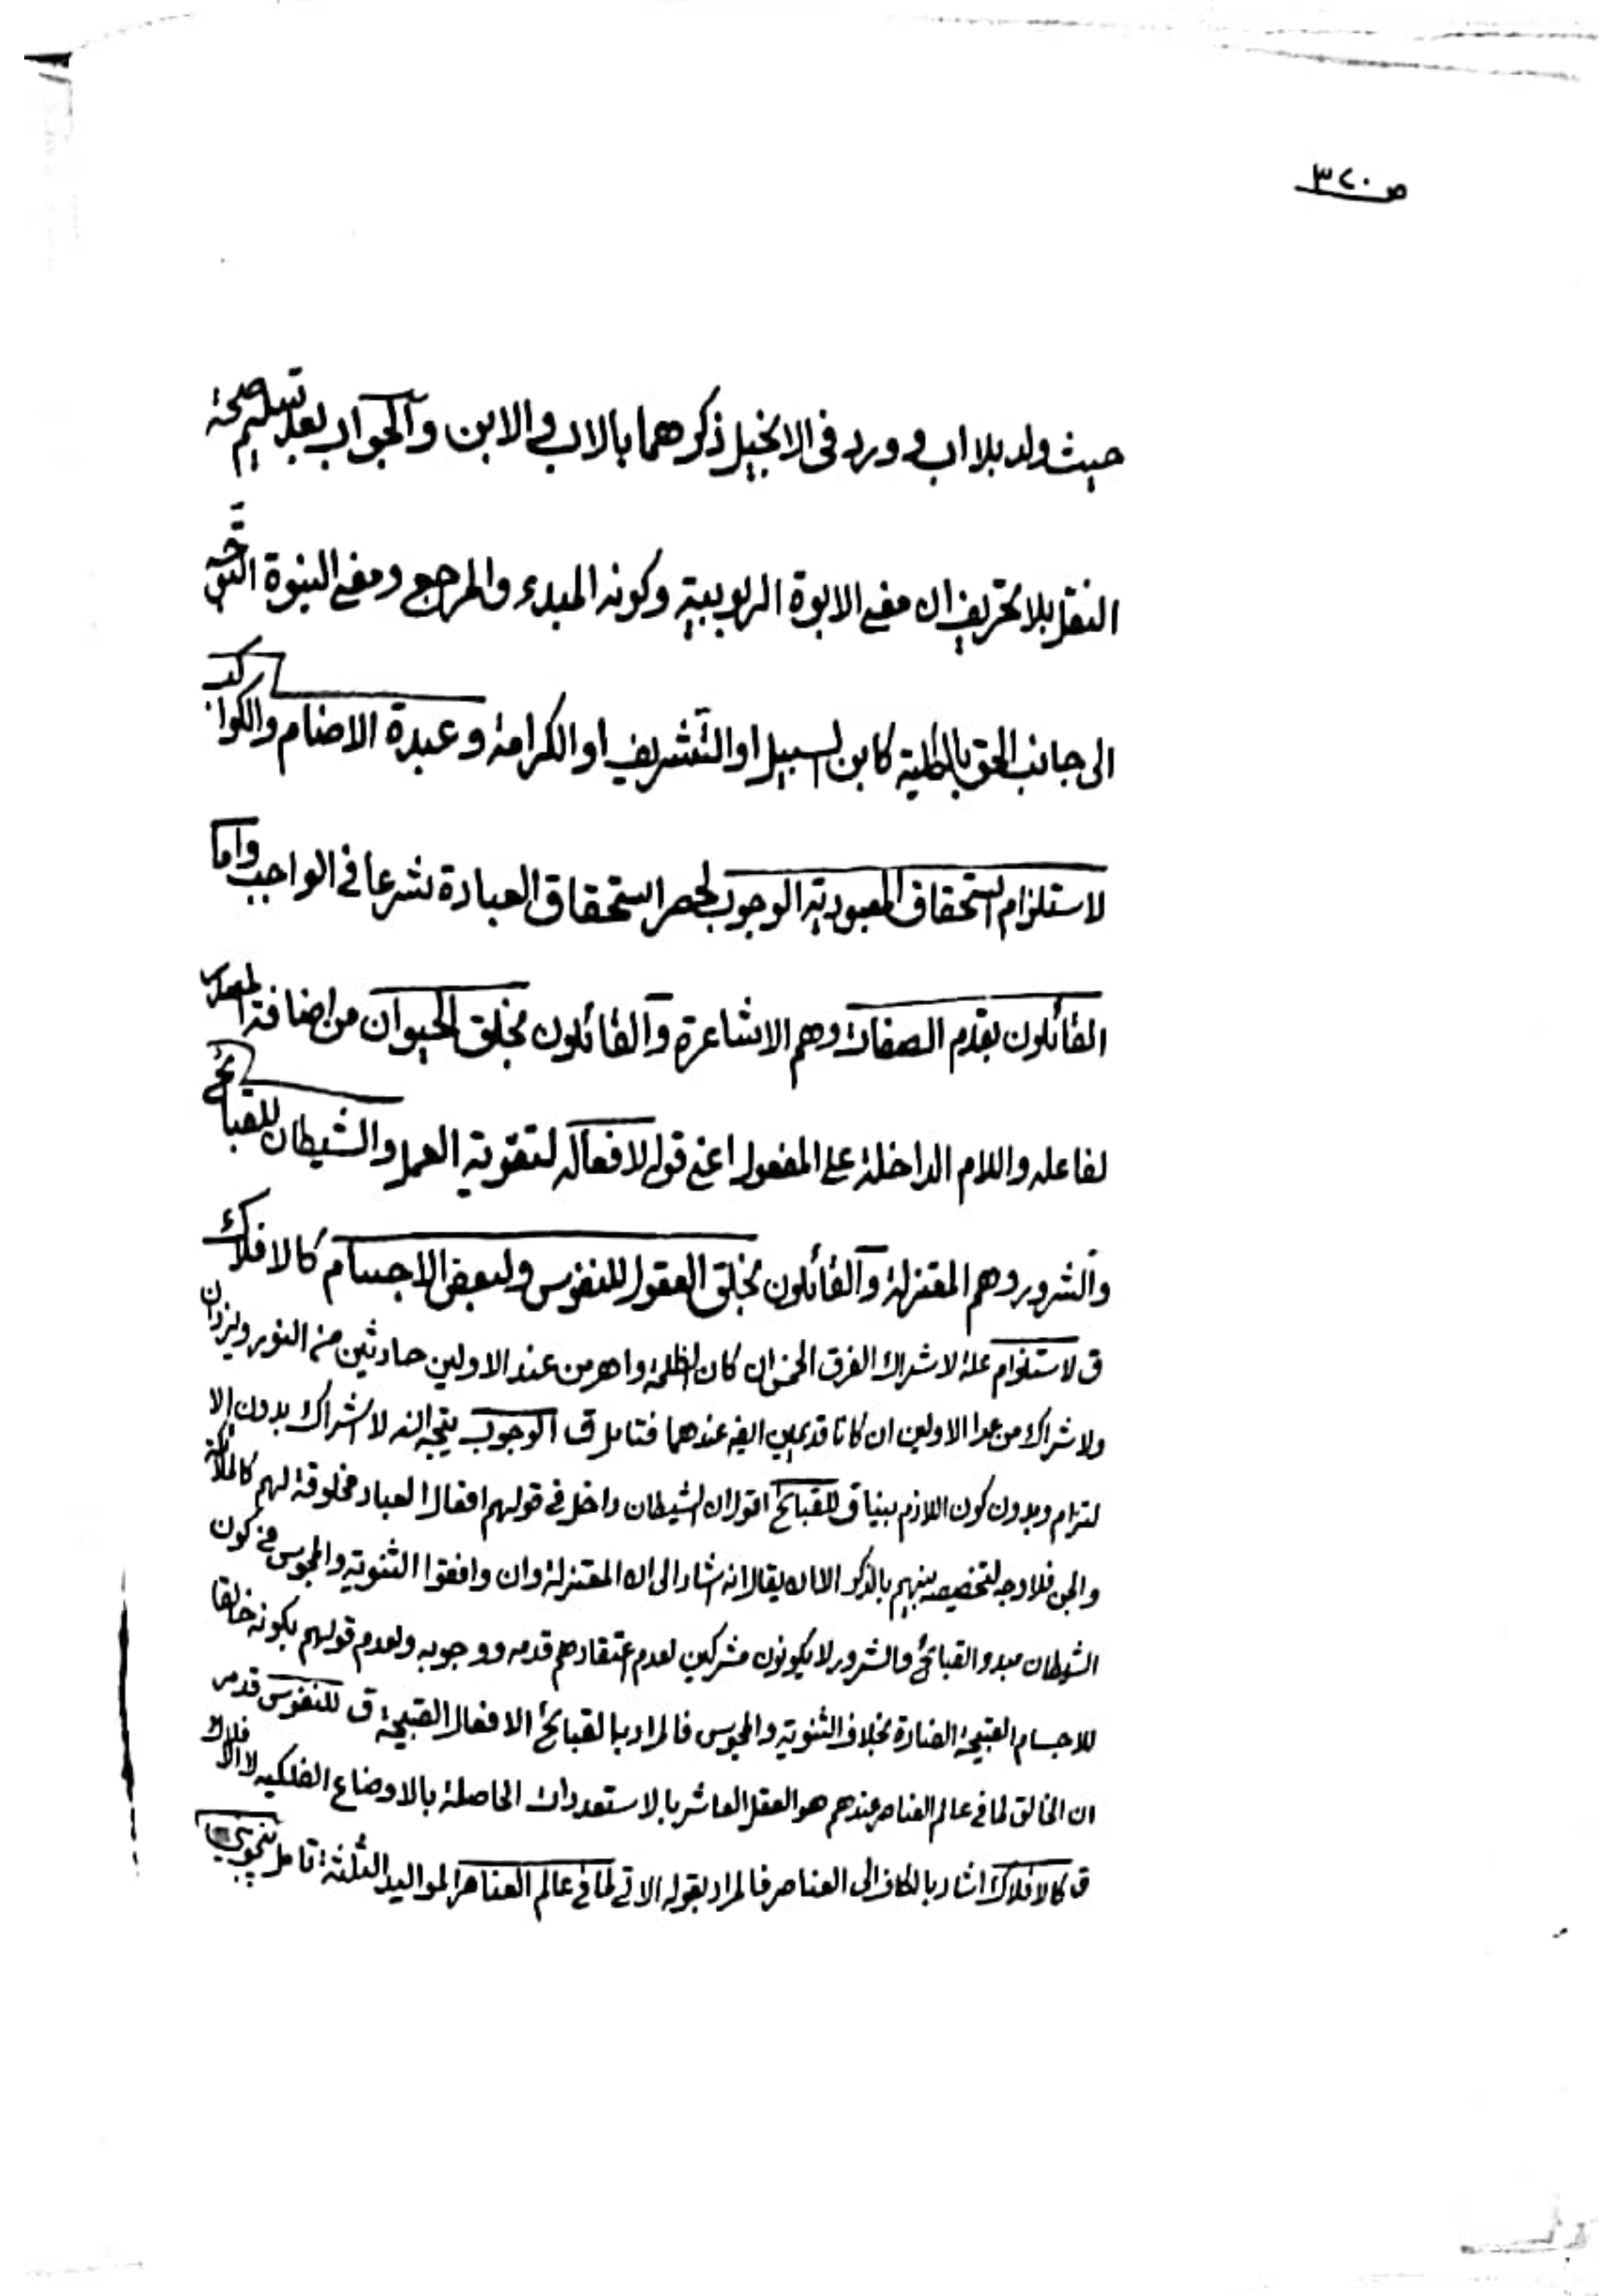 ص ٣٢٠
حيث ولد بلا اب و ورد فى الانجيل ذكرهما بالاب و الابن والجواب بعد تسليم صحة
النقل بلا تحريف ان معنى الابوة الربوبية وكونه المبدء والمرجع ومعنى البنوة التوجه
الى جانب الحق بالكلية كابن السبيل او التشريف او الكرامة وعبدة الاصنام والكواكب
لاستلزام استحقاق المعبودية الوجوب لحصر استحقاق العبادة شرعا فى الواجب واما
القائلون بقدم الصفات وهم الاشاعرة والقائلون بخلق الحيوان من اضافة المصدر
لفاعله واللام الداخلة على المفعول اعنى قوله لافعاله لتقوية العمل والشيطان للقبائح
والشرور وهم المعتزلة والقائلون بخلق العقول للنفوس ولبعض الاجسام كالافلاك
ق لاستلزام علة لاشراك الفرق الخمس ان كان الظلمة واهرمن عند الاولين حادثين من النور ويزدان
ولاشراك من عدا الاولين ان كانا قديمين ايضا عندهما فتامل ق الوجوب يتجه انه لا اشراك بدون الا
لتزام وبدون كون اللازم بينا ق للقبائح اقول ان الشيطان داخل فى قولهم افعال العباد مخلوقة لهم كالملائكة
والجن فلا وجه لتخصيصه بينهم بالذكر الا ان يقال انه اشار الى ان المعتزلة وان وافقوا الثنوية والمجوس فى كون
الشيطان مبدء القبائح والشرور لا يكونون مشركين لعدم اعتقادهم قدمه ووجوبه ولعدم قولهم بكونه خالقا
للاجسام القبيحة الضارة بخلاف الثنوية والمجوس فالمراد بالقبائح الافعال القبيحة ق للنفوس قد مر
ان الخالق لما فى عالم العناصر عندهم هو العقل العاشر بالاستعدادات الحاصلة بالاوضاع الفلكيه لا الافلاك
ق كالافلاك اشار بالكاف الى العناصر فالمراد بقوله الاتى لما فى عالم العناصر المواليد الثلثة تامل